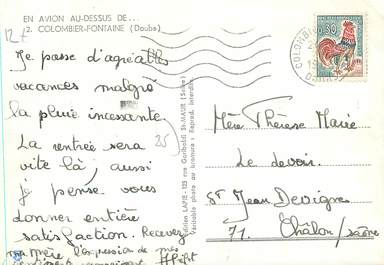 EN AVION AU-DESSUS DE...
2. COLOMBIER-FONTAINE (Doubs)
12f
Je passe d'agréables
vacances malgré
la pluie incessante
La rentrée sera
vite là, aussi
je pense vous
donner entière
satisfaction. Recevez
ma mère, l'expression de mes
25
Edition LAPIE - 125 rue Garibaldi St-MAUR (Seine)
Véritable photo au bromure - Reprod. interdite
0,30
COLOMBIER
Mère Thérèse Marie
Le devoir.
St Jean Devignes
71. Châlon/saône